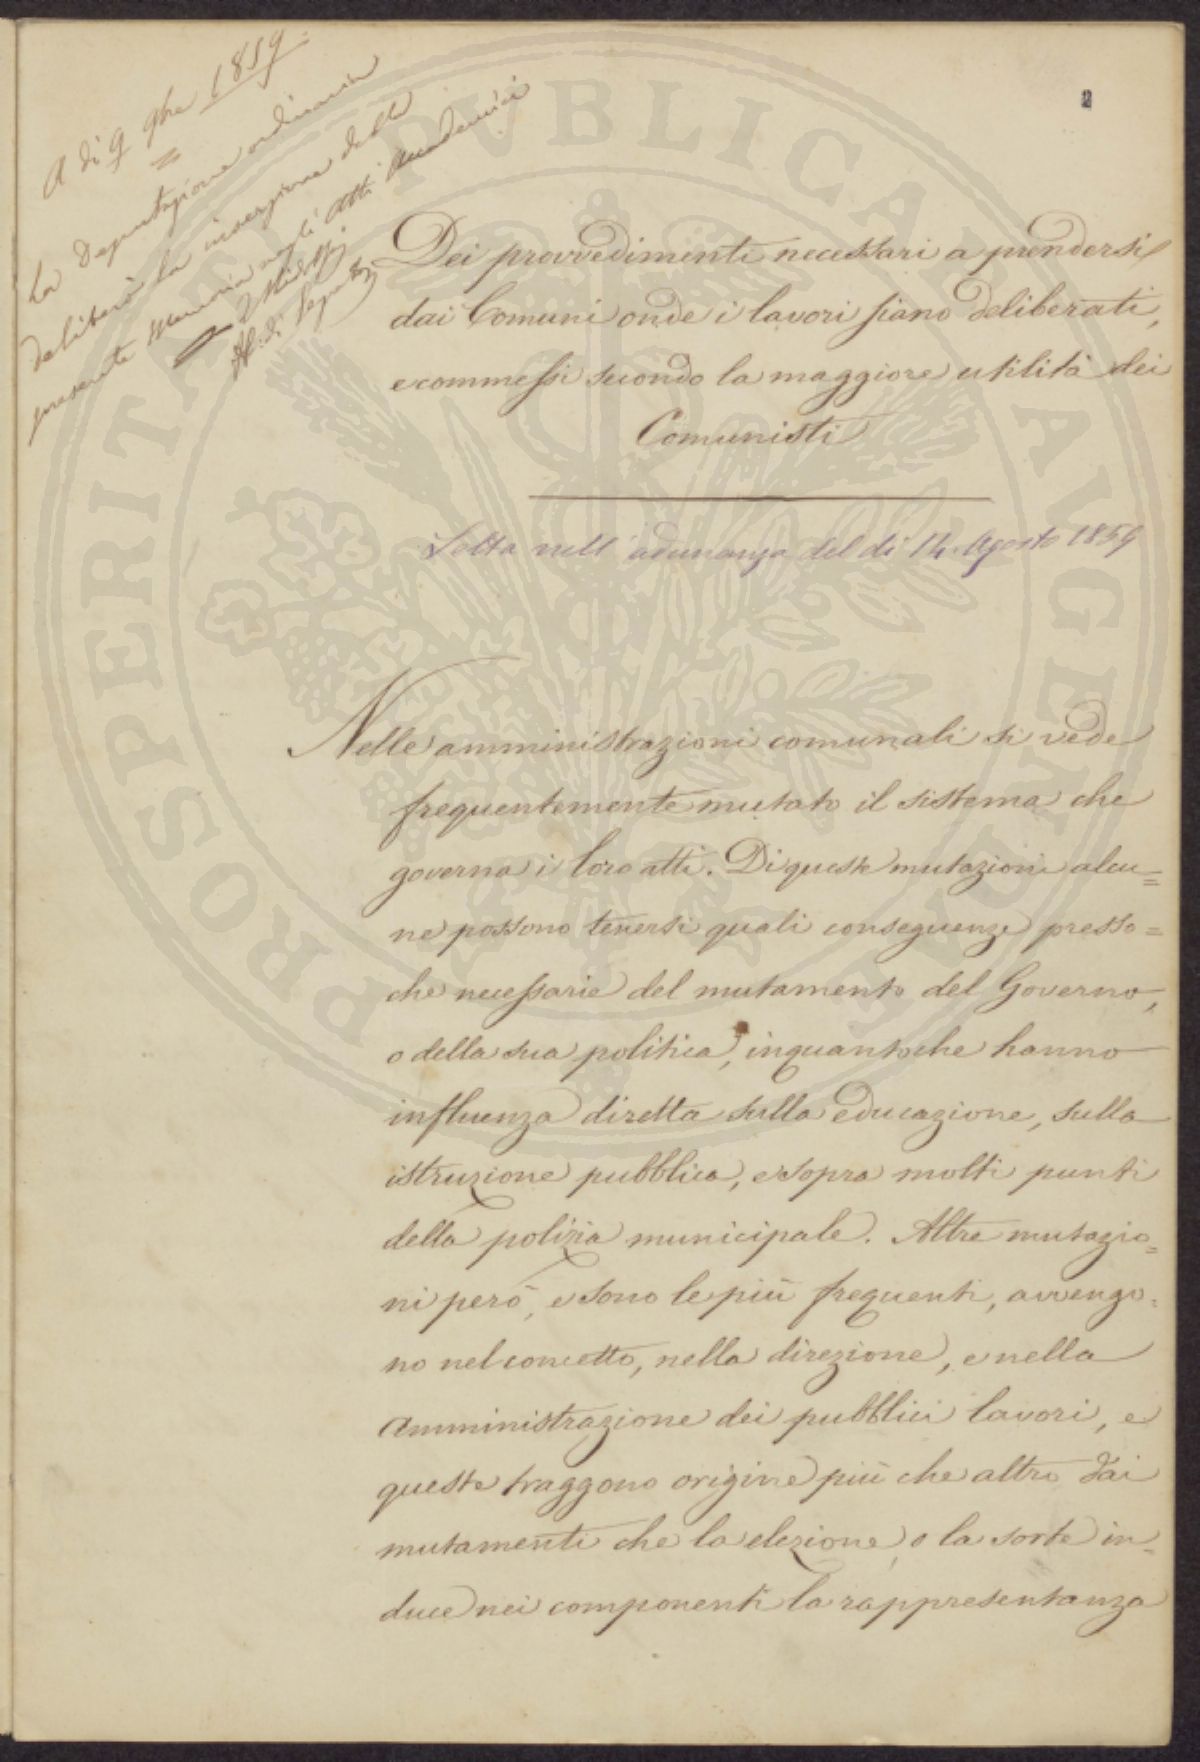 A dì 9 9bre 1859
La Deputazione ordinaria
deliberò la inserzione della
presente Memoria negli Atti Accademici
2
Dei provvedimenti necessari a prendersi
dai Comuni onde i lavori siano deliberati,
e commessi secondo la maggiore utilità dei
Comunisti
Letta nell'adunanza del dì 14. Agosto 1859
Nelle amministrazioni comunali si vede
frequentemente mutato il sistema che
governa i loro atti. Di queste mutazioni alcu=
ne possono tenersi quali conseguenze presso=
che necessarie del mutamento del Governo,
o della sua politica, inquantoche hanno
influenza diretta sulla educazione, sulla
istruzione pubblica, e sopra molti punti
della polizia municipale. Altre mutazio=
ni però, e sono le più frequenti, avvengo=
no nel concetto, nella direzione, e nella
amministrazione dei pubblici lavori, e
queste traggono origine più che altro dai
mutamenti che la elezione, o la sorte in=
duce nei componenti la rappresentanza
PROSPERITATI PVBLICAE AVGENDAE